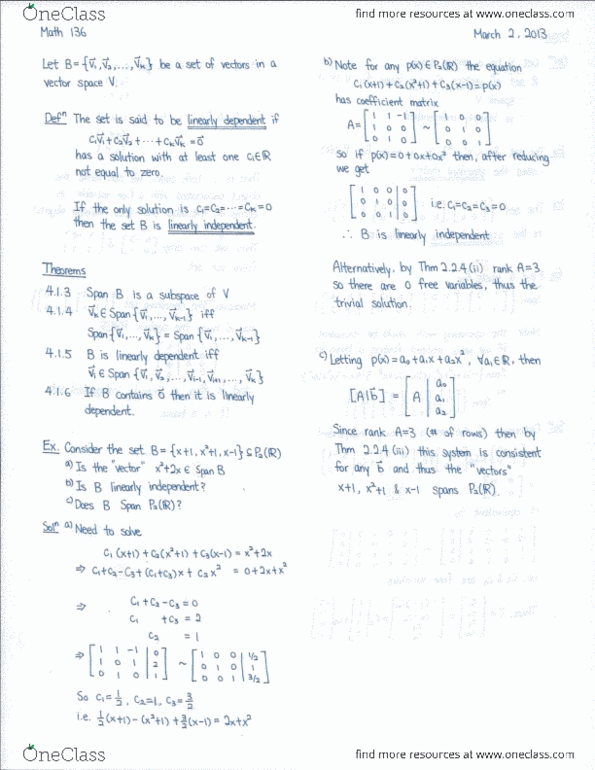 OneClass
find more resources at www.oneclass.com
Math 136
March 2, 2013
Let B = {v⃗₁, v⃗₂, ..., v⃗ₖ} be a set of vectors in a
vector space V.
Defⁿ The set is said to be linearly dependent if
c₁v⃗₁ + c₂v⃗₂ + ... + cₖv⃗ₖ = o⃗
has a solution with at least one cᵢ∈ℝ
not equal to zero.
If the only solution is c₁=c₂=...=cₖ=0
then the set B is linearly independent.
Theorems
4.1.3 Span B is a subspace of V
4.1.4 v⃗ₖ ∈ Span {v⃗₁, ..., v⃗ₖ₋₁} iff
Span{v⃗₁, ..., v⃗ₖ} = Span {v⃗₁, ..., v⃗ₖ₋₁}
4.1.5 B is linearly dependent iff
v⃗ᵢ ∈ Span {v⃗₁, v⃗₂, ..., v⃗ᵢ₋₁, v⃗ᵢ₊₁, ..., v⃗ₖ}
4.1.6 If B contains o⃗ then it is linearly
dependent.
Ex. Consider the set B = {x+1, x²+1, x-1} ⊆ P₂(ℝ)
a) Is the "vector" x²+2x ∈ Span B
b) Is B linearly independent?
c) Does B Span P₂(ℝ)?
Solⁿ a) Need to solve
c₁(x+1) + c₂(x²+1) + c₃(x-1) = x²+2x
⇒ c₁+c₂-c₃+(c₁+c₃)x + c₂x² = 0+2x+x²
⇒ c₁ + c₂ - c₃ = 0
c₁ + c₃ = 2
c₂ = 1
⇒ [1 1 -1 | 0] ~ [1 0 0 | 1/2]
[1 0 1 | 2] [0 1 0 | 1]
[0 1 0 | 1] [0 0 1 | 3/2]
So c₁=1/2, c₂=1, c₃=3/2
i.e. 1/2(x+1) - (x²+1) + 3/2(x-1) = 2x+x²
b) Note for any p(x) ∈ P₂(ℝ) the equation
c₁(x+1) + c₂(x²+1) + c₃(x-1) = p(x)
has coefficient matrix
A = [1 1 -1] ~ [1 0 0]
[1 0 0] [0 1 0]
[0 1 0] [0 0 1]
so if p(x)=0+0x+0x² then, after reducing
we get
[1 0 0 | 0]
[0 1 0 | 0] i.e. c₁=c₂=c₃=0
[0 0 1 | 0]
∴ B is linearly independent
Alternatively, by Thm 2.2.4 (ii) rank A=3
so there are 0 free variables, thus the
trivial solution.
c) Letting p(x)=a₀+a₁x+a₂x², ∀aᵢ∈ℝ, then
[A|b⃗] = [A | a₀
a₁
a₂]
Since rank A=3 (# of rows) then by
Thm 2.2.4 (iii) this system is consistent
for any b⃗ and thus the "vectors"
x+1, x²+1 & x-1 spans P₂(ℝ).
OneClass
find more resources at www.oneclass.com